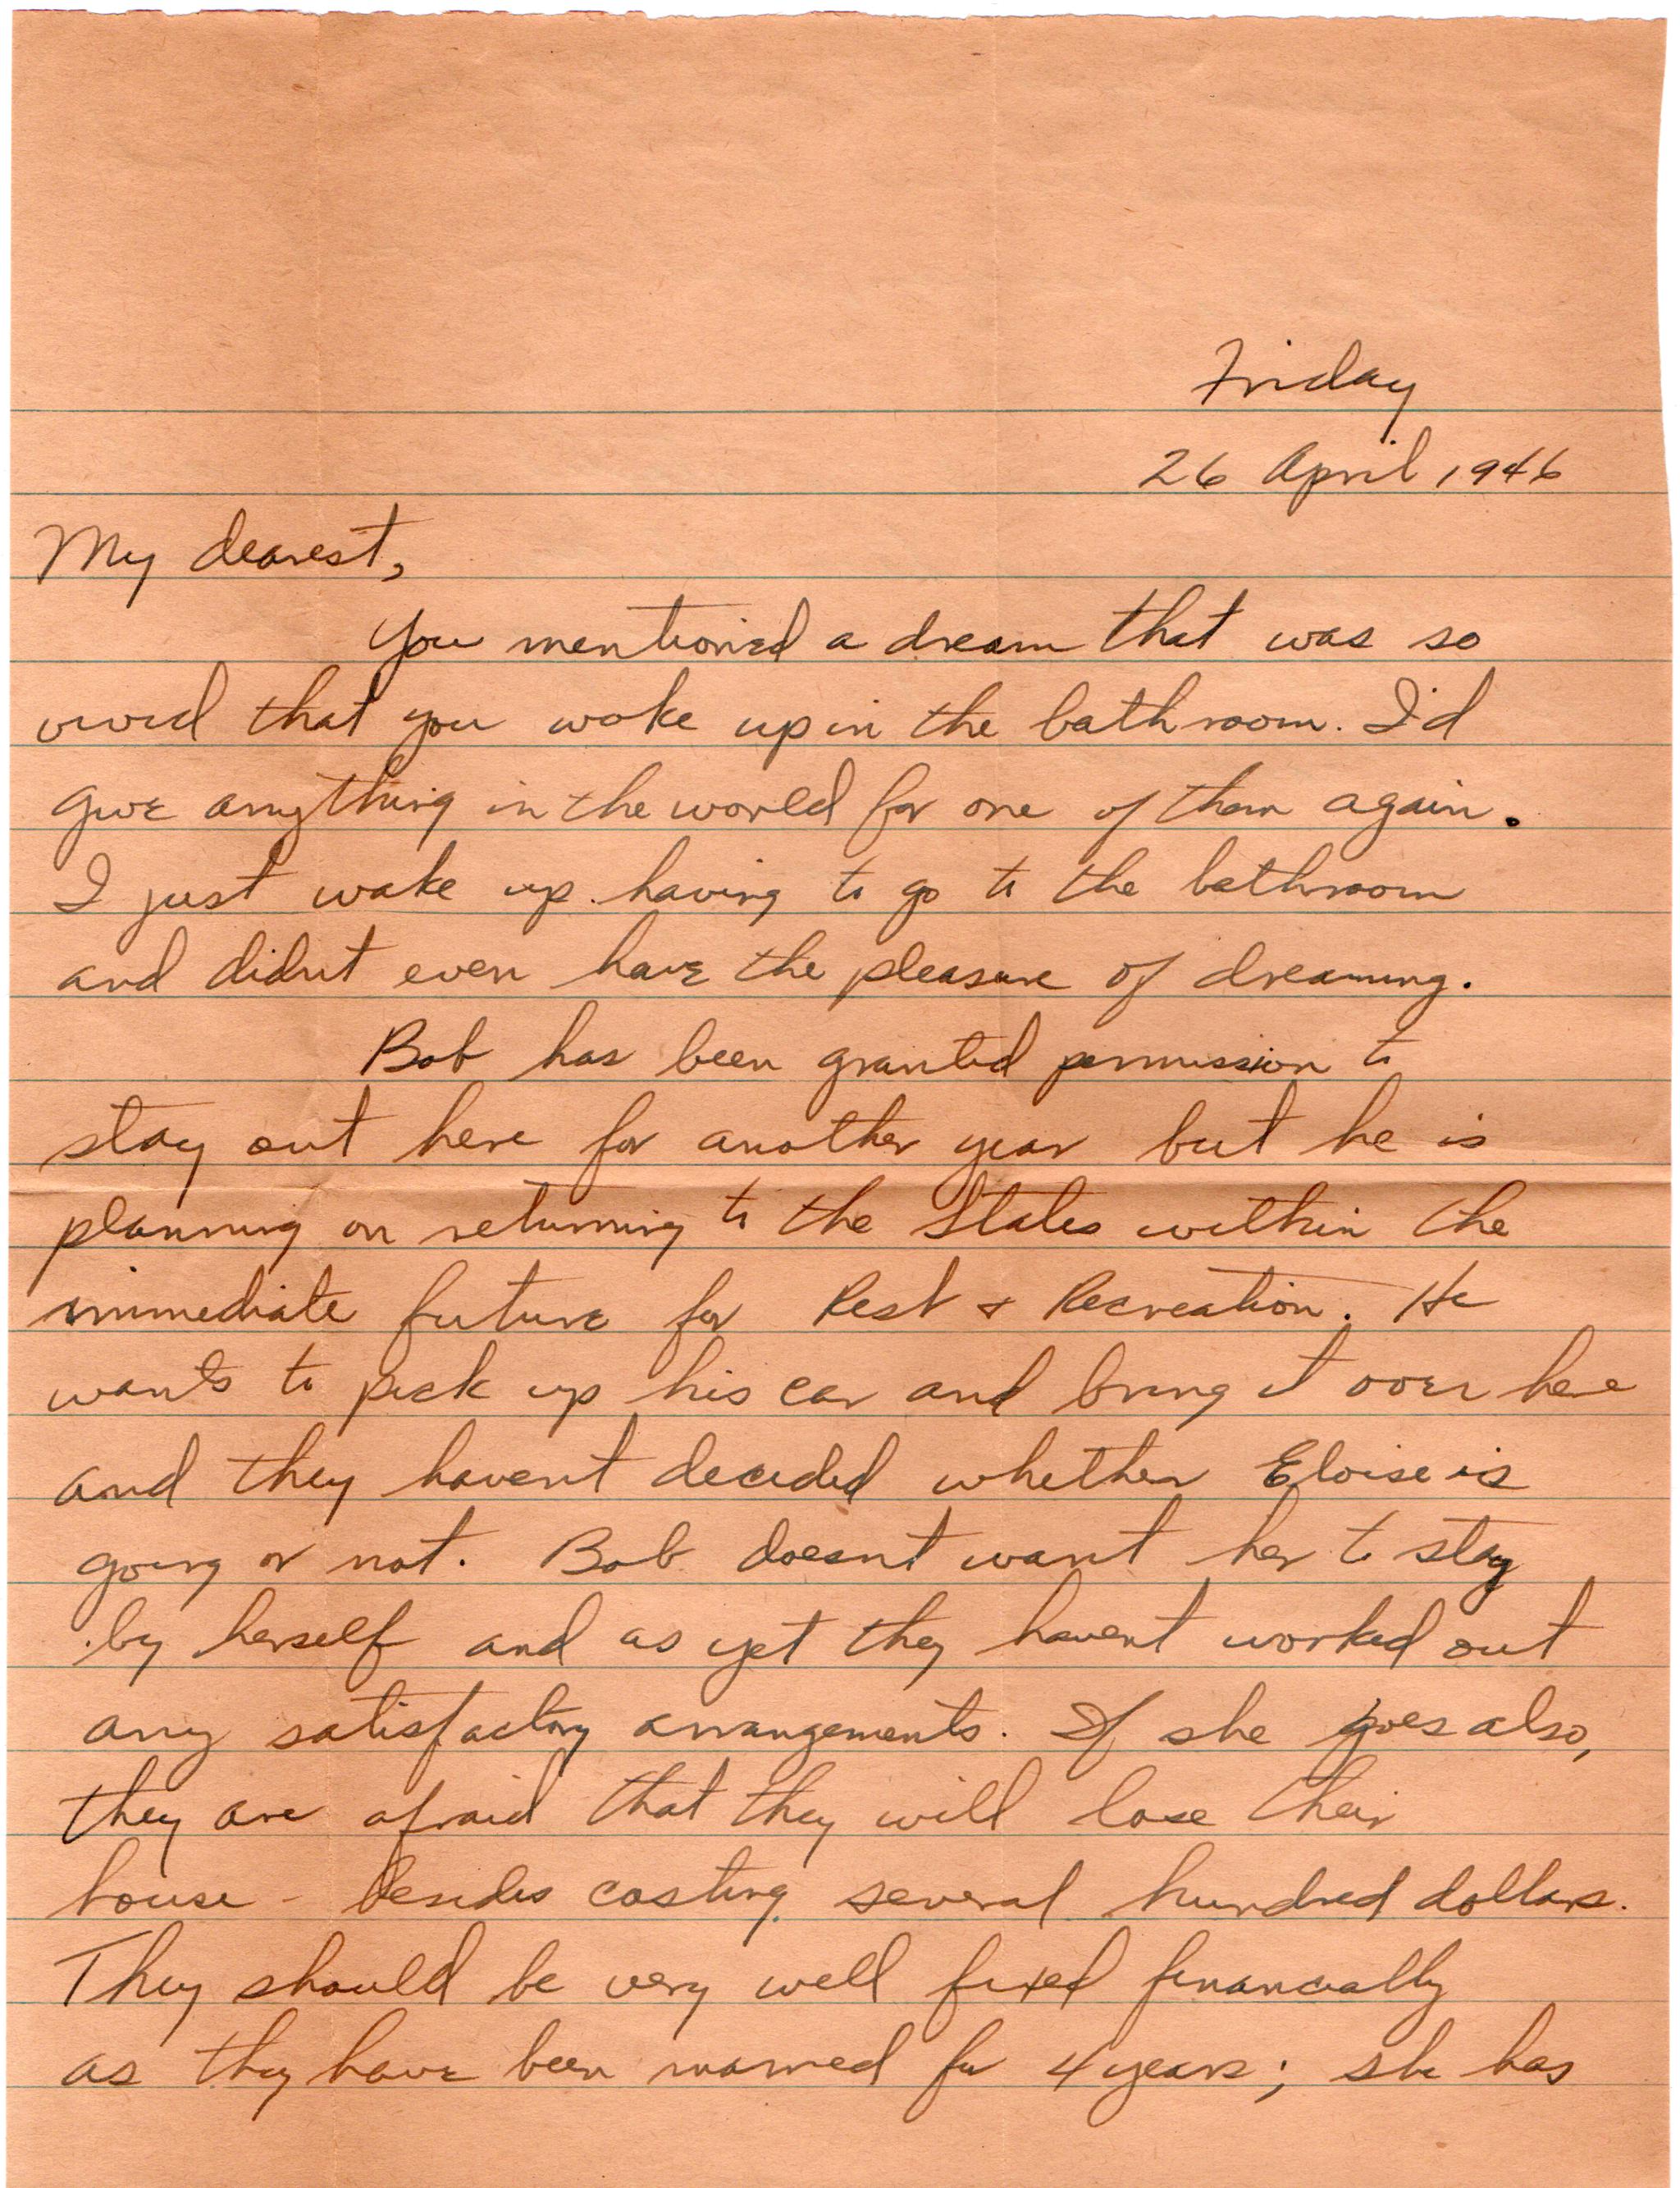 Friday
26 April 1946
My dearest,
You mentioned a dream that was so
vivid that you woke up in the bathroom. I'd
give anything in the world for one of them again.
I just wake up having to go to the bathroom
and didn't even have the pleasure of dreaming.
Bob has been granted permission to
stay out here for another year but he is
planning on returning to the States within the
immediate future for Rest & Recreation. He
wants to pick up his car and bring it over here
and they haven't decided whether Eloise is
going or not. Bob doesn't want her to stay
by herself and as yet they haven't worked out
any satisfactory arrangements. If she goes also,
they are afraid that they will lose their
house - besides costing several hundred dollars.
They should be very well fixed financially
as they have been married for 4 years; she has